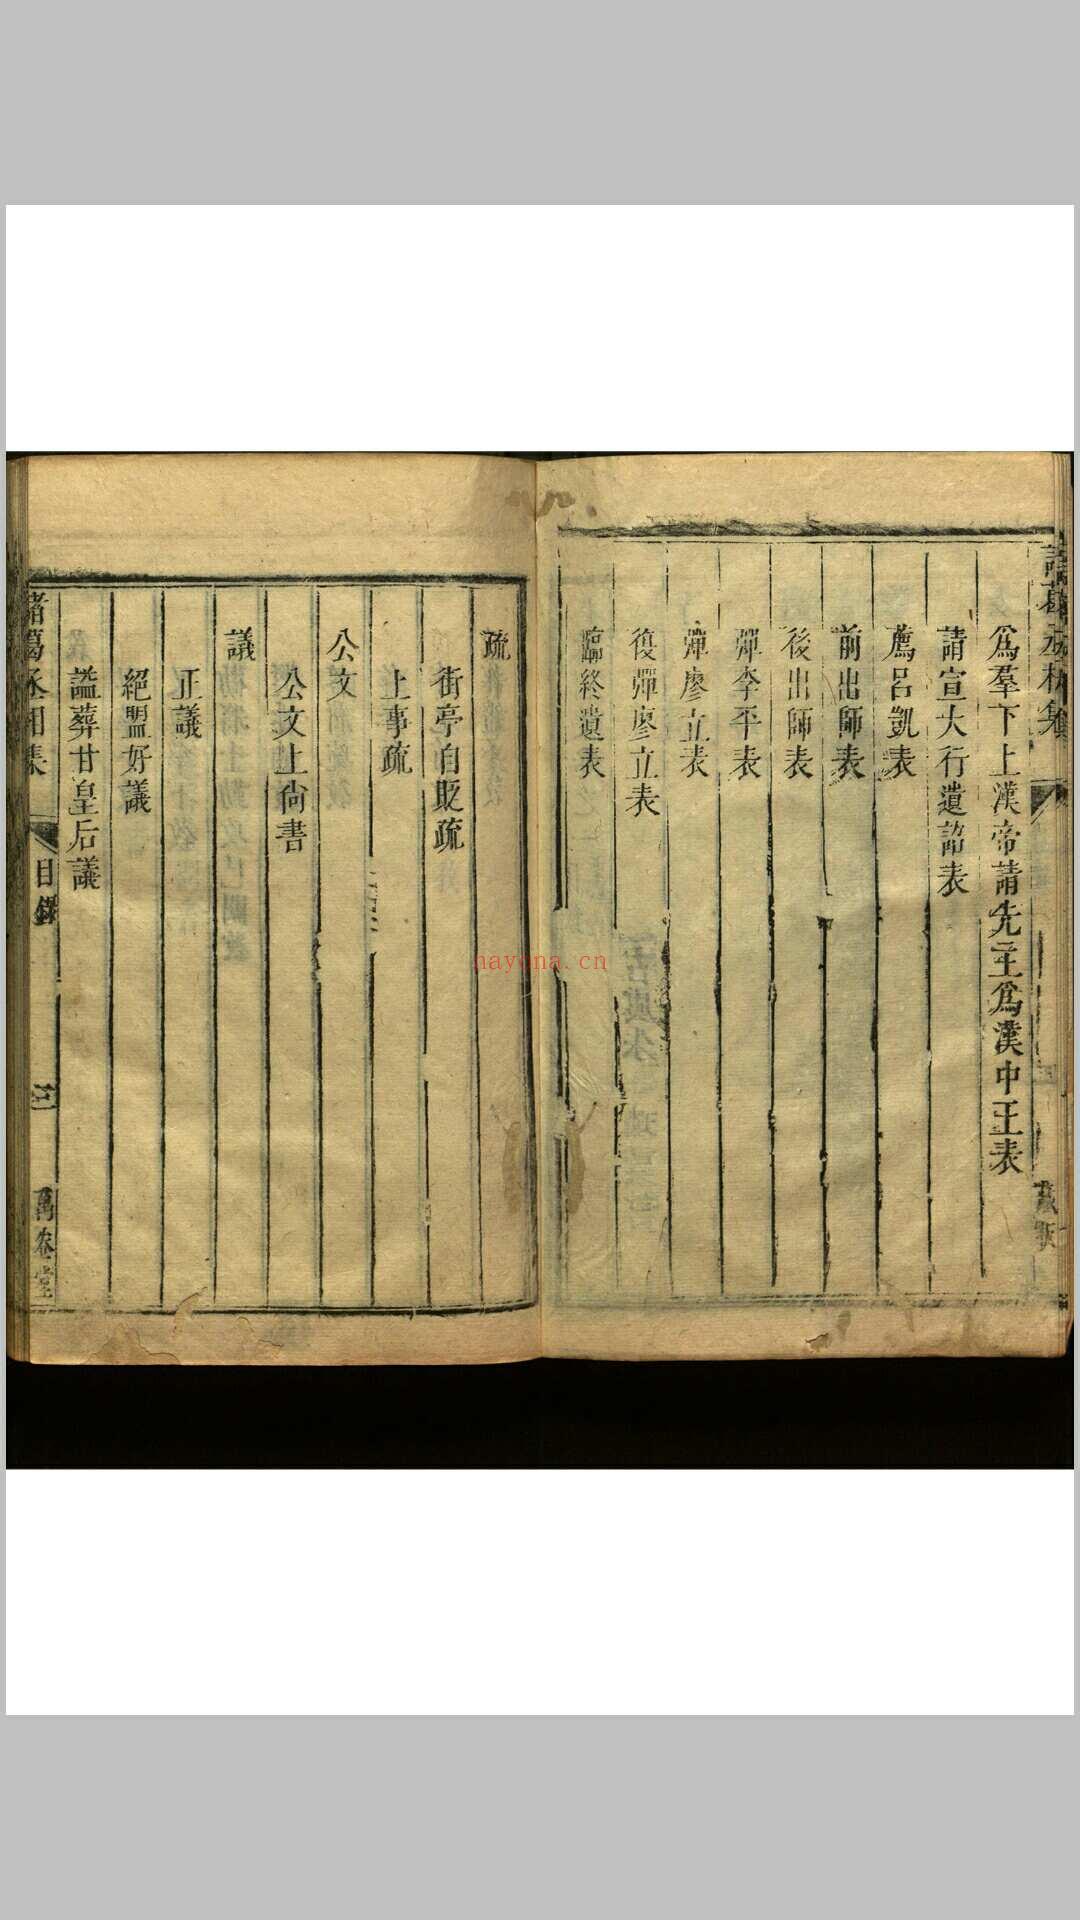 諸葛丞相集
爲羣下上漢帝請先主爲漢中王表
請宣大行遺詔表
薦呂凱表
前出師表
後出師表
彈李平表
彈廖立表
復彈廖立表
臨終遺表
疏
街亭自貶疏
上事疏
公文
公文上尙書
議
正議
絕盟好議
諡葬甘皇后議
諸葛丞相集
目錄
二
萬卷堂
nayona.cn